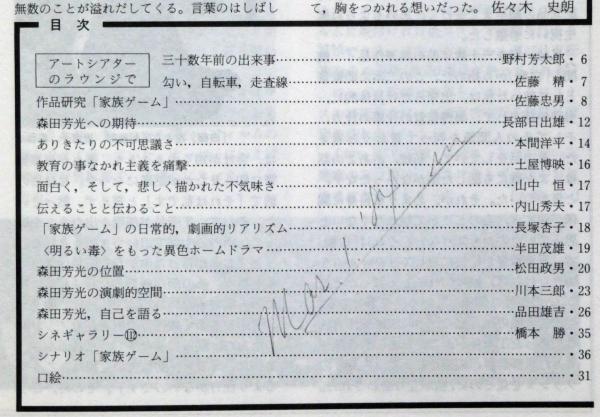 無数のことが溢れだしてくる。言葉のはしばし
て，胸をつかれる想いだった。 佐々木 史朗
目 次
アートシアターのラウンジで
三十数年前の出来事……野村芳太郎・6
匂い，自転車，走査線……佐藤 精・7
作品研究「家族ゲーム」……佐藤忠男・8
森田芳光への期待……長部日出雄・12
ありきたりの不可思議さ……本間洋平・14
教育の事なかれ主義を痛撃……土屋博映・16
面白く，そして，悲しく描かれた不気味さ……山中 恒・17
伝えることと伝わること……内山秀夫・17
「家族ゲーム」の日常的，劇画的リアリズム……長塚杏子・18
〈明るい毒〉をもった異色ホームドラマ……半田茂雄・19
森田芳光の位置……松田政男・20
森田芳光の演劇的空間……川本三郎・23
森田芳光，自己を語る……品田雄吉・26
シネギャラリー⑫……橋本 勝・35
シナリオ「家族ゲーム」……36
口絵……31